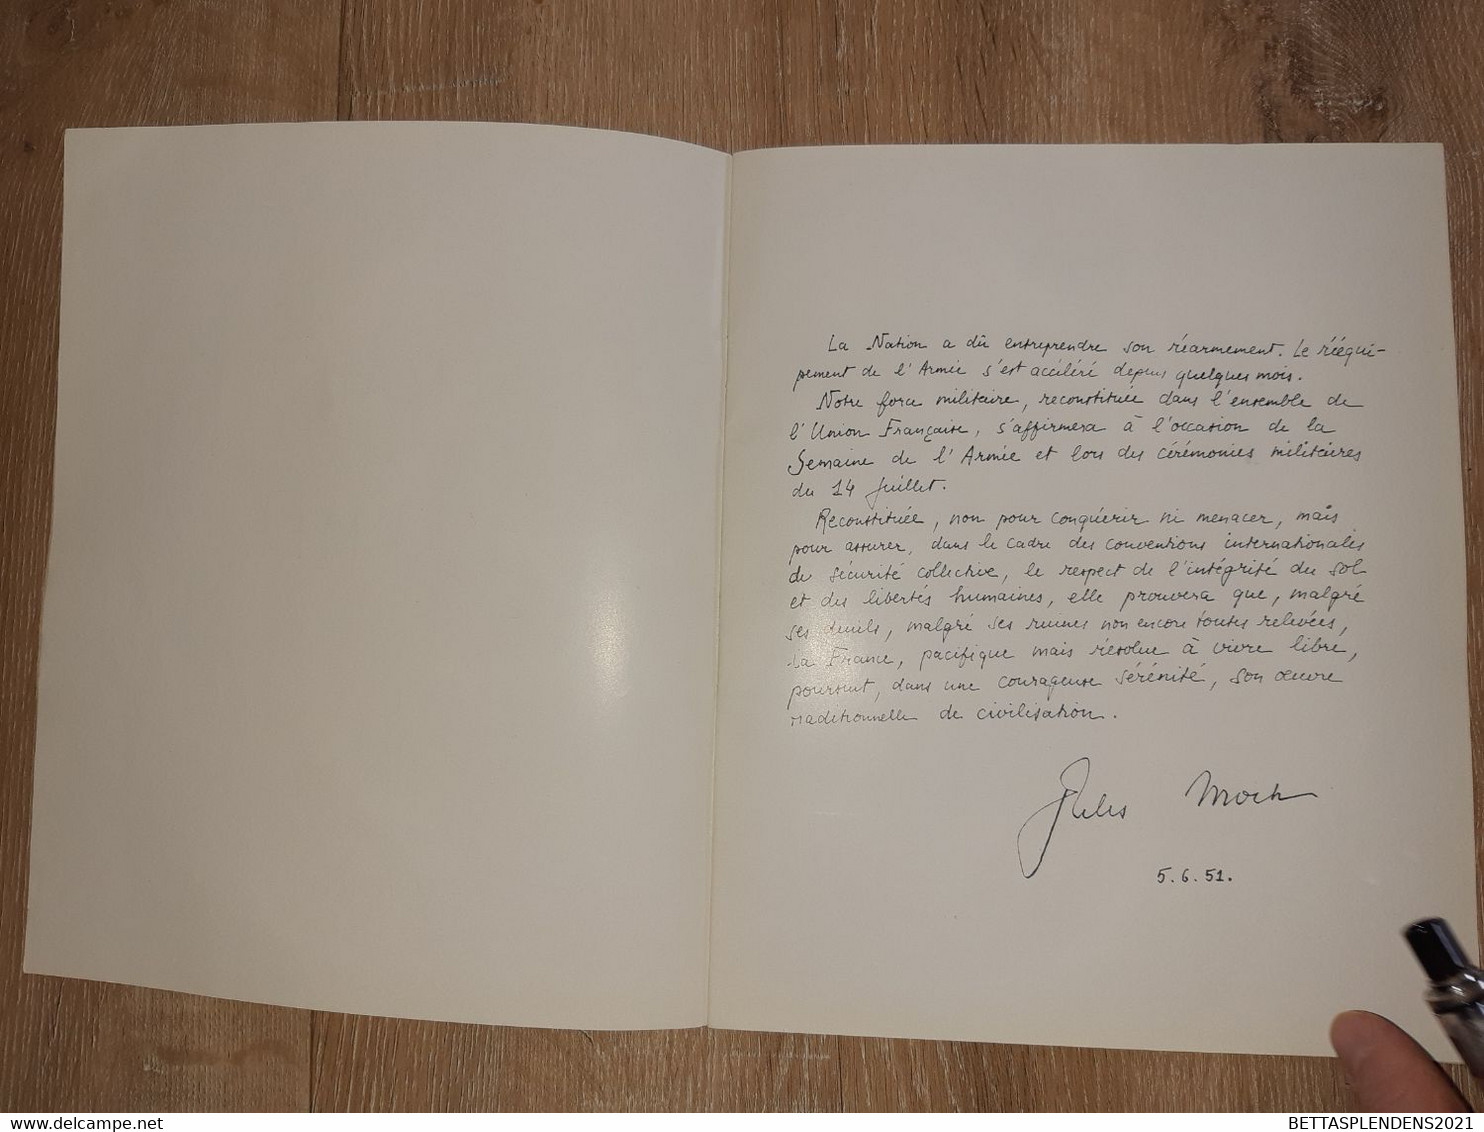 La Nation a dû entreprendre son réarmement. Le rééqui-
pement de l'Armée s'est accéléré depuis quelques mois.
Notre force militaire, reconstituée dans l'ensemble de
l'Union Française, s'affirmera à l'occasion de la
Semaine de l'Armée et lors des cérémonies militaires
du 14 Juillet.
Reconstituée, non pour conquérir ni menacer, mais
pour assurer, dans le cadre des conventions internationales
de sécurité collective, le respect de l'intégrité du sol
et des libertés humaines, elle prouvera que, malgré
ses deuils, malgré ses ruines non encore toutes relevées,
La France, pacifique mais résolue à vivre libre,
poursuit, dans une courageuse sérénité, son œuvre
traditionnelle de civilisation.
Jules Moch
5.6.51.
delcampe.net
BETTASPLENDENS2021